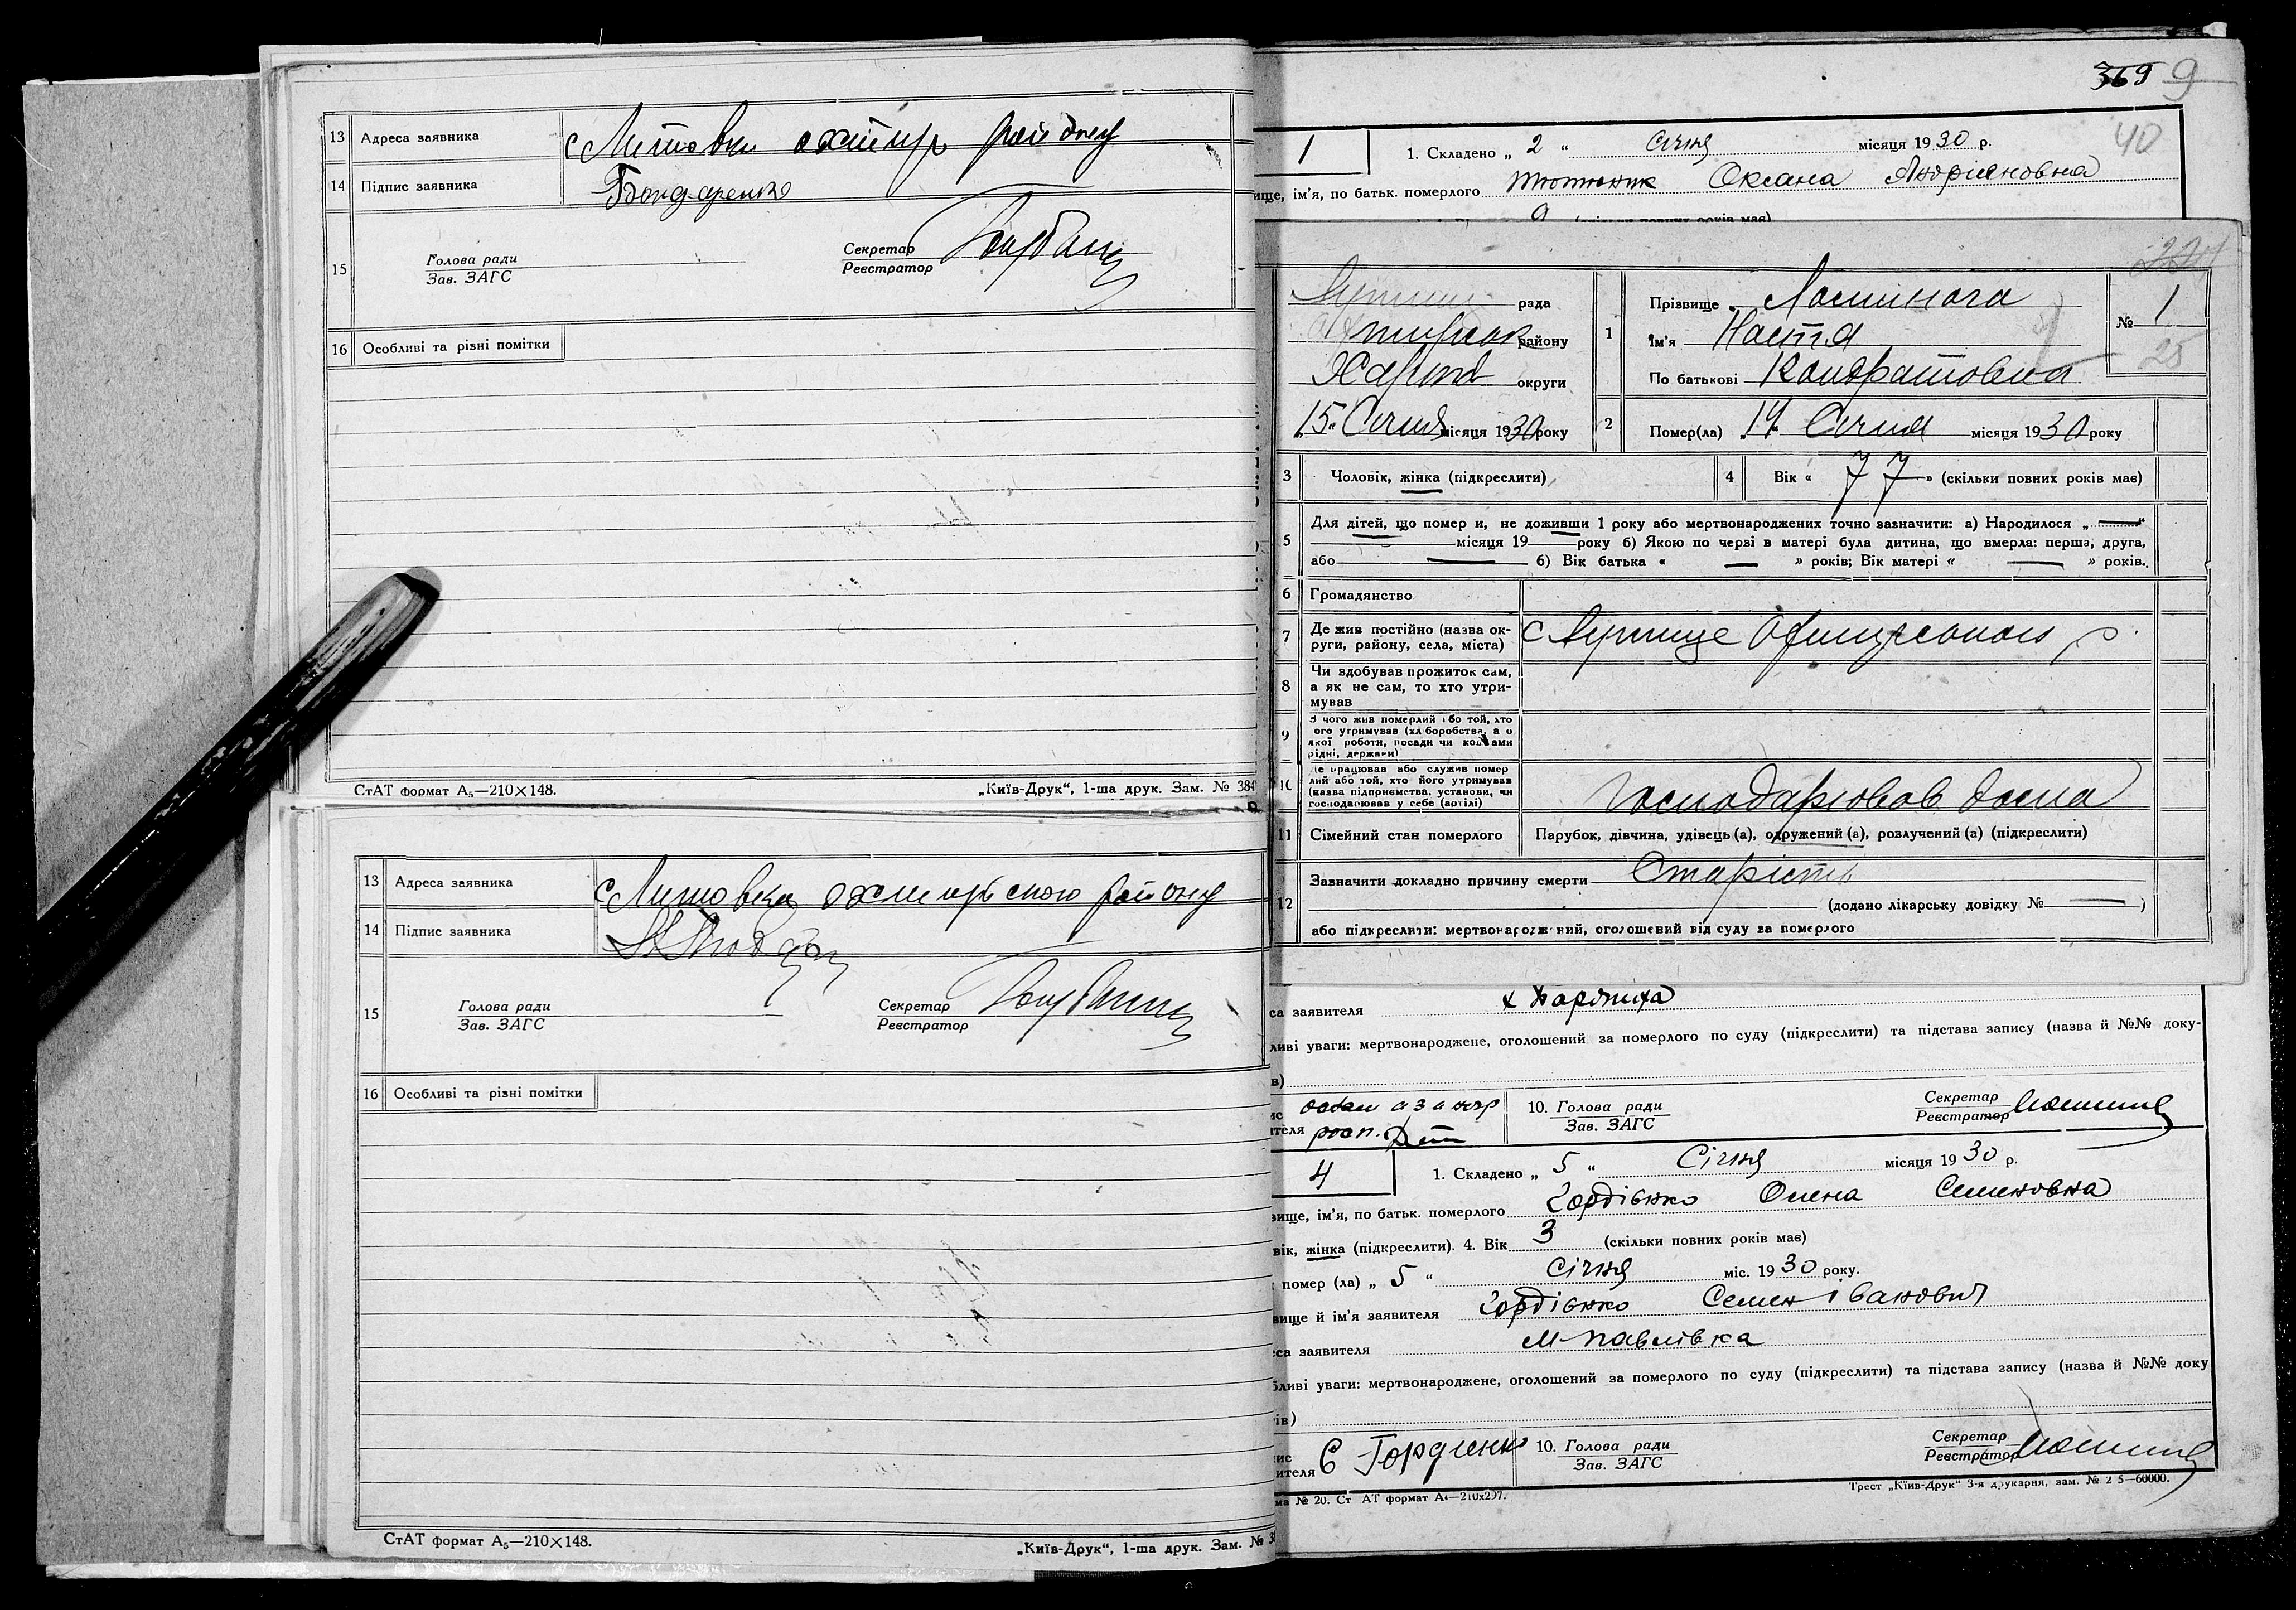 13 Адреса заявника с Литовки охтир району
14 Підпис заявника Бондаренко
15 Голова ради
Зав. ЗАГС
Секретар
Реєстратор
16 Особливі та різні помітки
СтАТ формат А₅—210×148. „Київ-Друк“, 1-ша друк. Зам. № 384
13 Адреса заявника с Литовка охтирського району
14 Підпис заявника
15 Голова ради
Зав. ЗАГС
Секретар
Реєстратор
16 Особливі та різні помітки
СтАТ формат А₅—210×148. „Київ-Друк“, 1-ша друк. Зам. №
369 9
40
1 1. Складено „ 2 “ січня місяця 1930 р.
ище, ім'я, по батьк. померлого Тютюник Оксана Андріяновна
224
рада
району
Харків округи
„15“ Січня місяця 1930 року
1 Прізвище
Ім'я Настя
По батькові Кондратовна
№ 1
25
2 Помер(ла) 14 Січня місяця 1930 року
3 Чоловік, жінка (підкреслити)
4 Вік « 77 » (скільки повних років має)
5 Для дітей, що помер и, не доживши 1 року або мертвонароджених точно зазначити: а) Народилося „ — “
місяця 19 — року б) Якою по черзі в матері була дитина, що вмерла: перша, друга,
або — б) Вік батька « — » років; Вік матері « — » років.
6 Громадянство
7 Де жив постійно (назва округи, району, села, міста) с
8 Чи здобував прожиток сам,
а як не сам, то хто утри-
мував
9 З чого жив померлий або той, хто
ого утримував (хліборобства, а о
якої роботи, посади чи коштами
рідні, держави)
10 де працював або служив помер
лий або той, хто його утримував
(назва підприємства, установи, чи
господарював у себе (артілі)
Господарював дома
11 Сімейний стан померлого Парубок, дівчина, удівець (а), одружений (а), розлучений (а) (підкреслити)
12 Зазначити докладно причину смерти Старість
(додано лікарську довідку № — )
або підкреслити: мертвонароджений, оголошений від суду за померлого
са заявителя
ливі уваги: мертвонароджене, оголошений за померлого по суду (підкреслити) та підстава запису (назва й №№ доку-
в)
ителя
10. Голова ради
Зав. ЗАГС
Секретар
Реєстратор
4 1. Складено „ 5 “ Січня місяця 1930 р.
вище, ім'я, по батьк. померлого Гордієнко Олена Семеновна
вік, жінка (підкреслити). 4. Вік 3 (скільки повних років має)
помер (ла) „ 5 “ січня міс. 1930 року.
вище й ім'я заявителя Гордієнко Семен Іванович
са заявителя М-Павлівка
ливі уваги: мертвонароджене, оголошений за померлого по суду (підкреслити) та підстава запису (назва й №№ доку
ів)
ис
ителя С Гордиенко
10. Голова ради
Зав. ЗАГС
Секретар
Реєстратор
ма № 20. Ст АТ формат А₄—210х297. Трест „Київ-Друк“ 3-я друкарня, зам. № 2 5—60000.